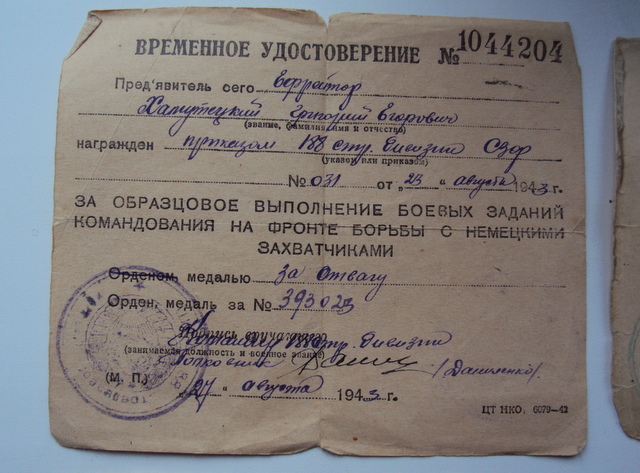 ВРЕМЕННОЕ УДОСТОВЕРЕНИЕ № 1044204
Пред'явитель сего Ефрейтор
Григорий Егорович
(звание, фамилия, имя и отчество)
награжден приказом 188 стр. дивизии СЗФ
(указом или приказом)
№ 031 от „23“ августа 1943 г.
ЗА ОБРАЗЦОВОЕ ВЫПОЛНЕНИЕ БОЕВЫХ ЗАДАНИЙ
КОМАНДОВАНИЯ НА ФРОНТЕ БОРЬБЫ С НЕМЕЦКИМИ
ЗАХВАТЧИКАМИ
Орденом, медалью за Отвагу
Орден, медаль за №
Подпись вручившего
Командир 188 стр. дивизии
(занимаемая должность и военное звание)
Полковник (Даниленко).
(М. П.)
„27“ августа 1943 г.
ЦТ НКО. 6079—42